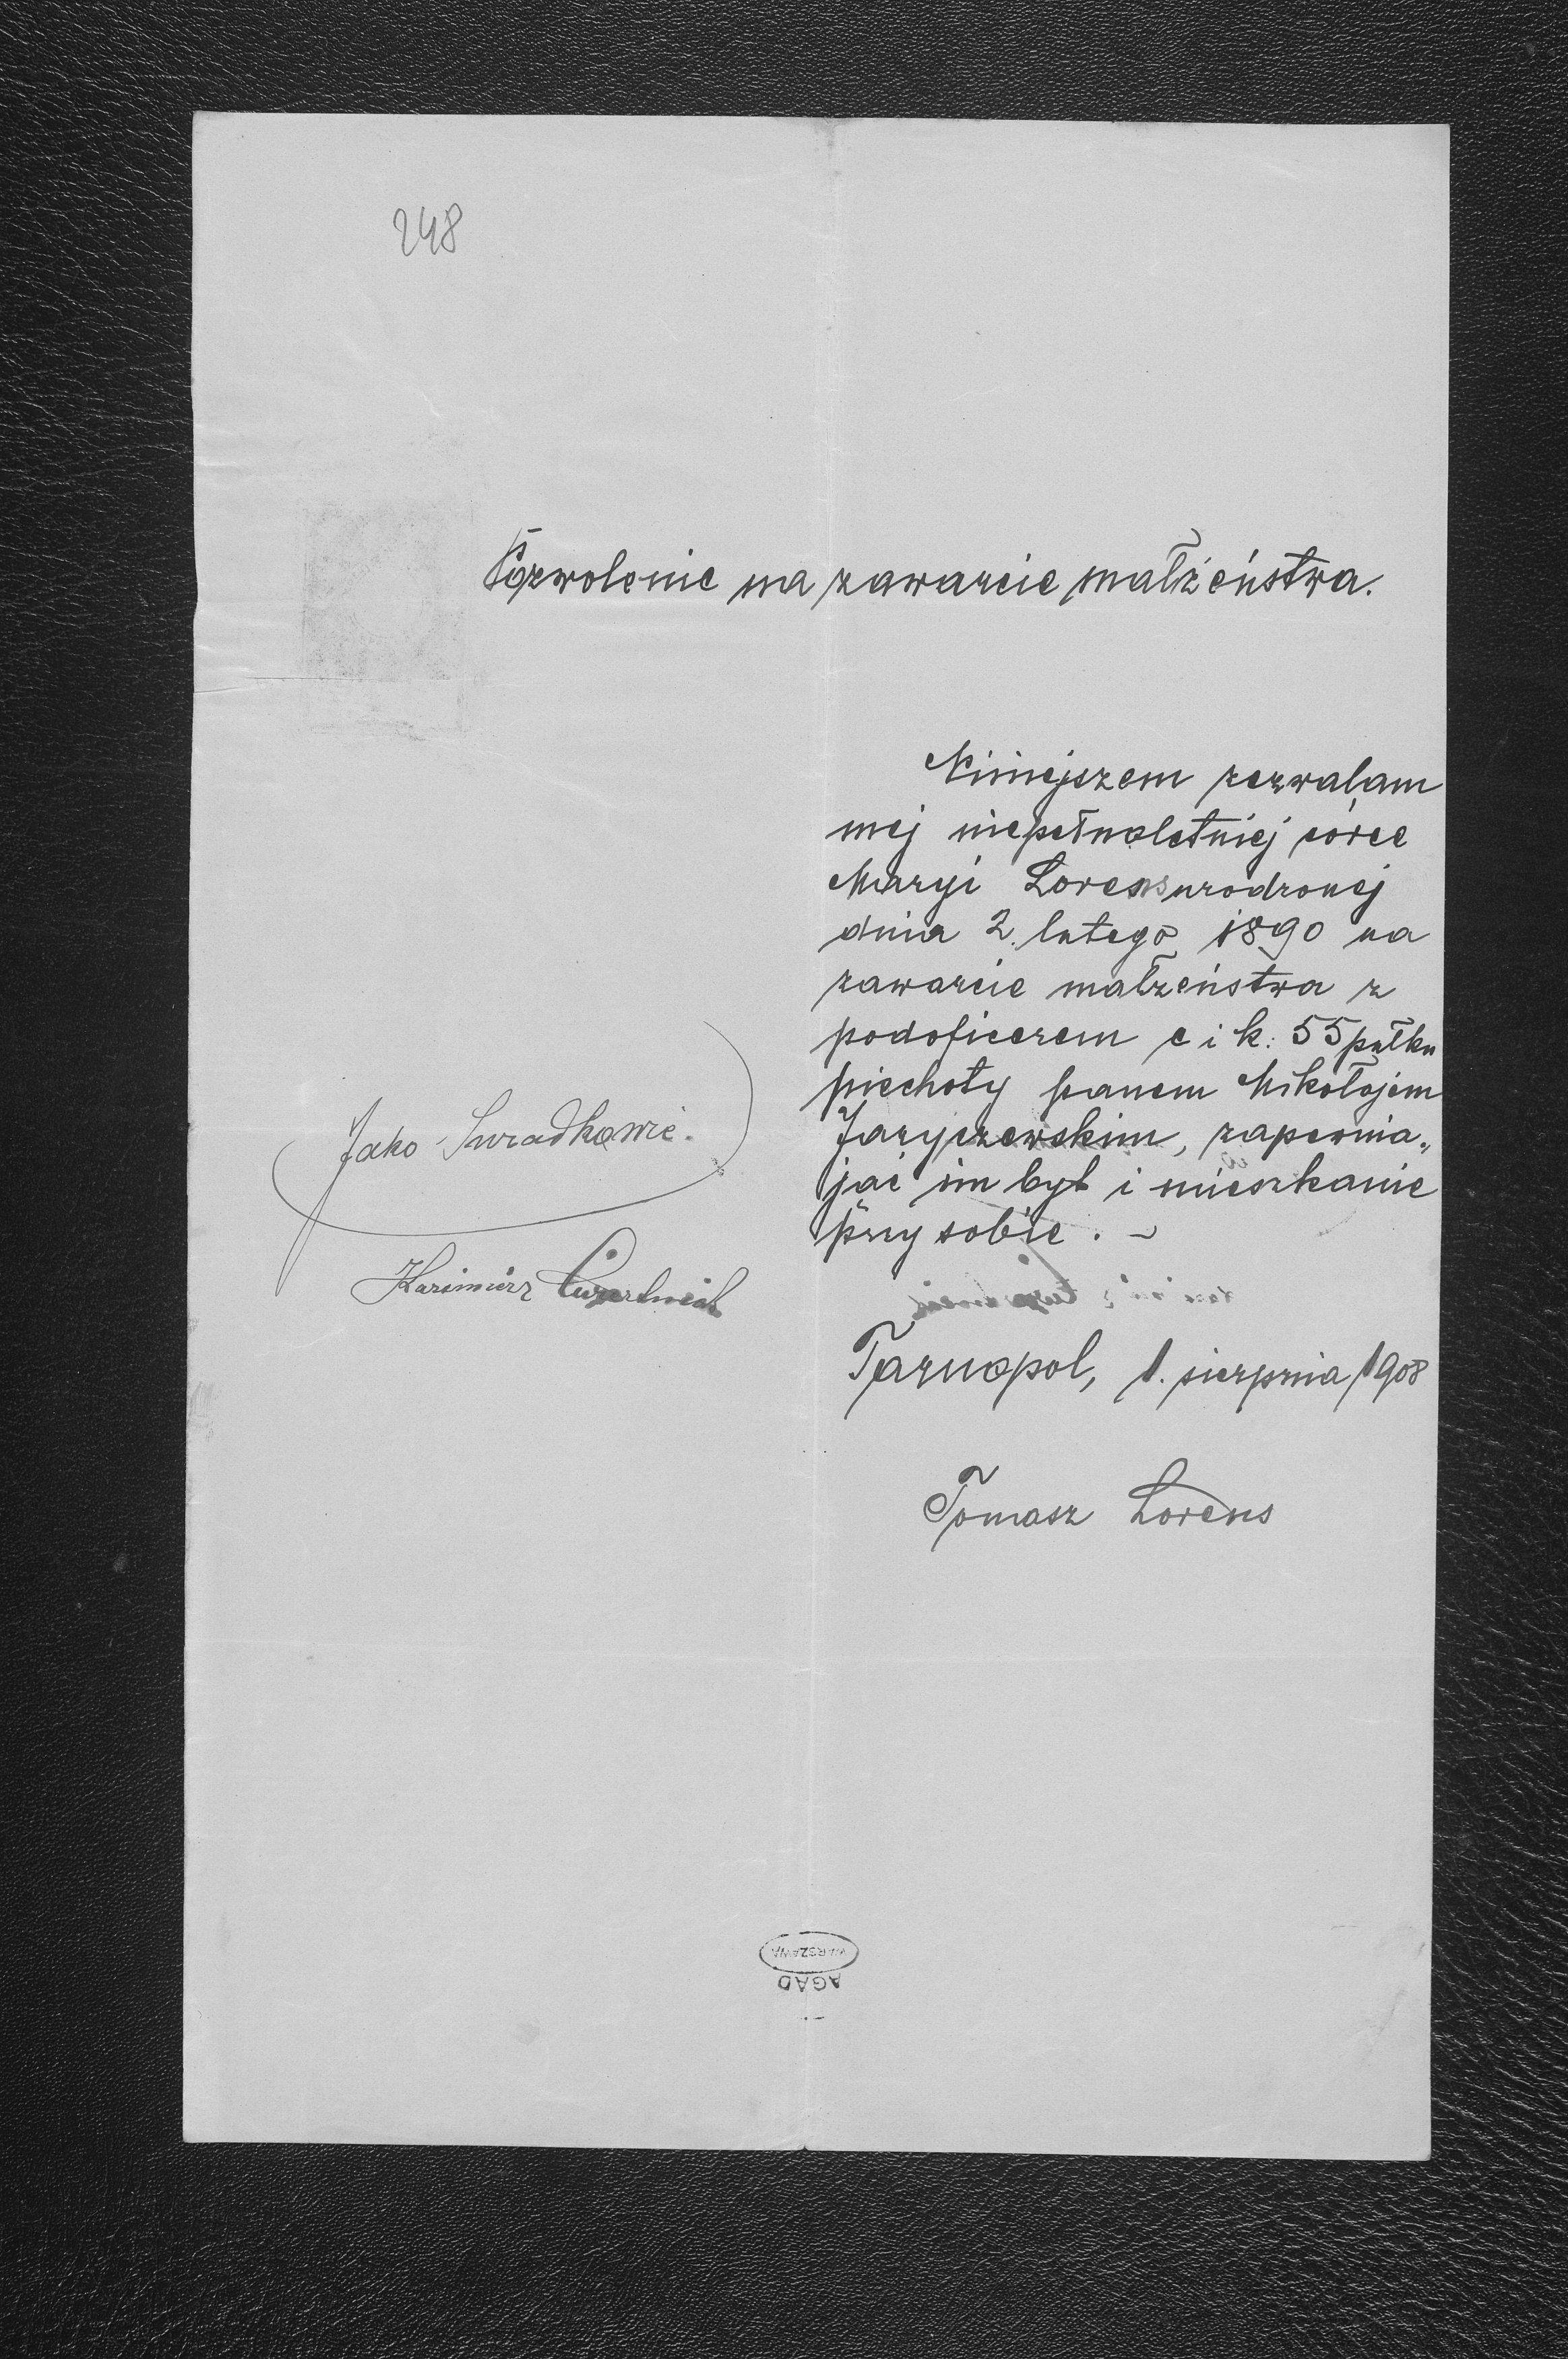 248
Pozwolenie na zawarcie małżeństwa.
Niniejszem zezwalam
mej niepełnoletniej córce
Maryi Lorens urodzonej
dnia 2. lutego 1890 na
zawarcie małżeństwa z
podoficerem c i k. 55 pułku
piechoty panem Mikołajem
Jaryczewskim, zapewnia„
jąc im byt i mieszkanie
przy sobie. -
Jako Swiadkowie.
Kazimierz
Tarnopol, 1. sierpnia 1908
Tomasz Lorens
WARSZAWA
AGAD